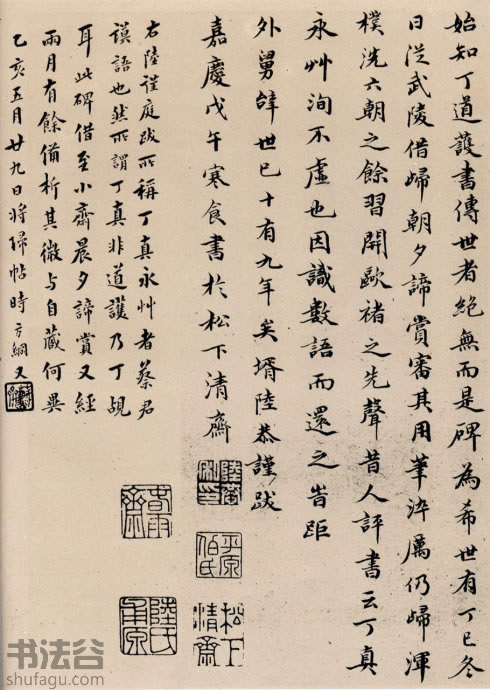 始知丁道護書傳世者絶無而是碑為希世有丁巳冬
日從武陵借歸朝夕諦賞審其用筆淬厲仍歸渾
樸洗六朝之餘習開歐褚之先聲昔人評書云丁真
永艸洵不虛也因識數語而還之旹距
外舅辭世已十有九年矣壻陸恭謹跋
嘉慶戊午寒食書於松下清齋
平原伯氏
松下清齋
右陸謹庭跋所稱丁真永艸者蔡君
謨語也然所謂丁真非道護乃丁覘
耳此碑借至小齋晨夕諦賞又經
兩月有餘備析其微与自藏何異
乙亥五月廿九日將歸帖時方綱又
书法谷
shufagu.com